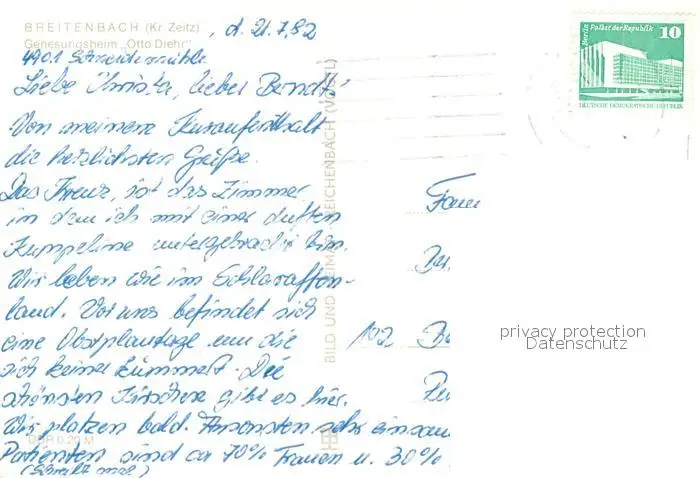 BREITENBACH (Kr. Zeitz) , d. 21.7.82
Genesungsheim „Otto Diehr"
4901 Schneidemühle
Liebe Christa, lieber Berndt!
Von meinem Kuraufenthalt
die herzlichsten Grüße.
Das Kreuz, ist das Zimmer
in dem ich mit einer duften
Kumpeline untergebracht bin.
Wir leben wie im Schlaraffen-
land. Vor uns befindet sich
eine Obstplantage um die
sich keiner kümmert. Die
schönsten Kirschen gibt es hier.
Wir platzen bald. Ansonsten sehr einsam
Patienten sind ca 70% Frauen u. 30%
(Schreibt mal)
DDR 0,20 M
BILD UND HEIMAT REICHENBACH (VOGTL)
Berlin Palast der Republik
10
DEUTSCHE DEMOKRATISCHE REPUBLIK
Fam
102
privacy protection
Datenschutz